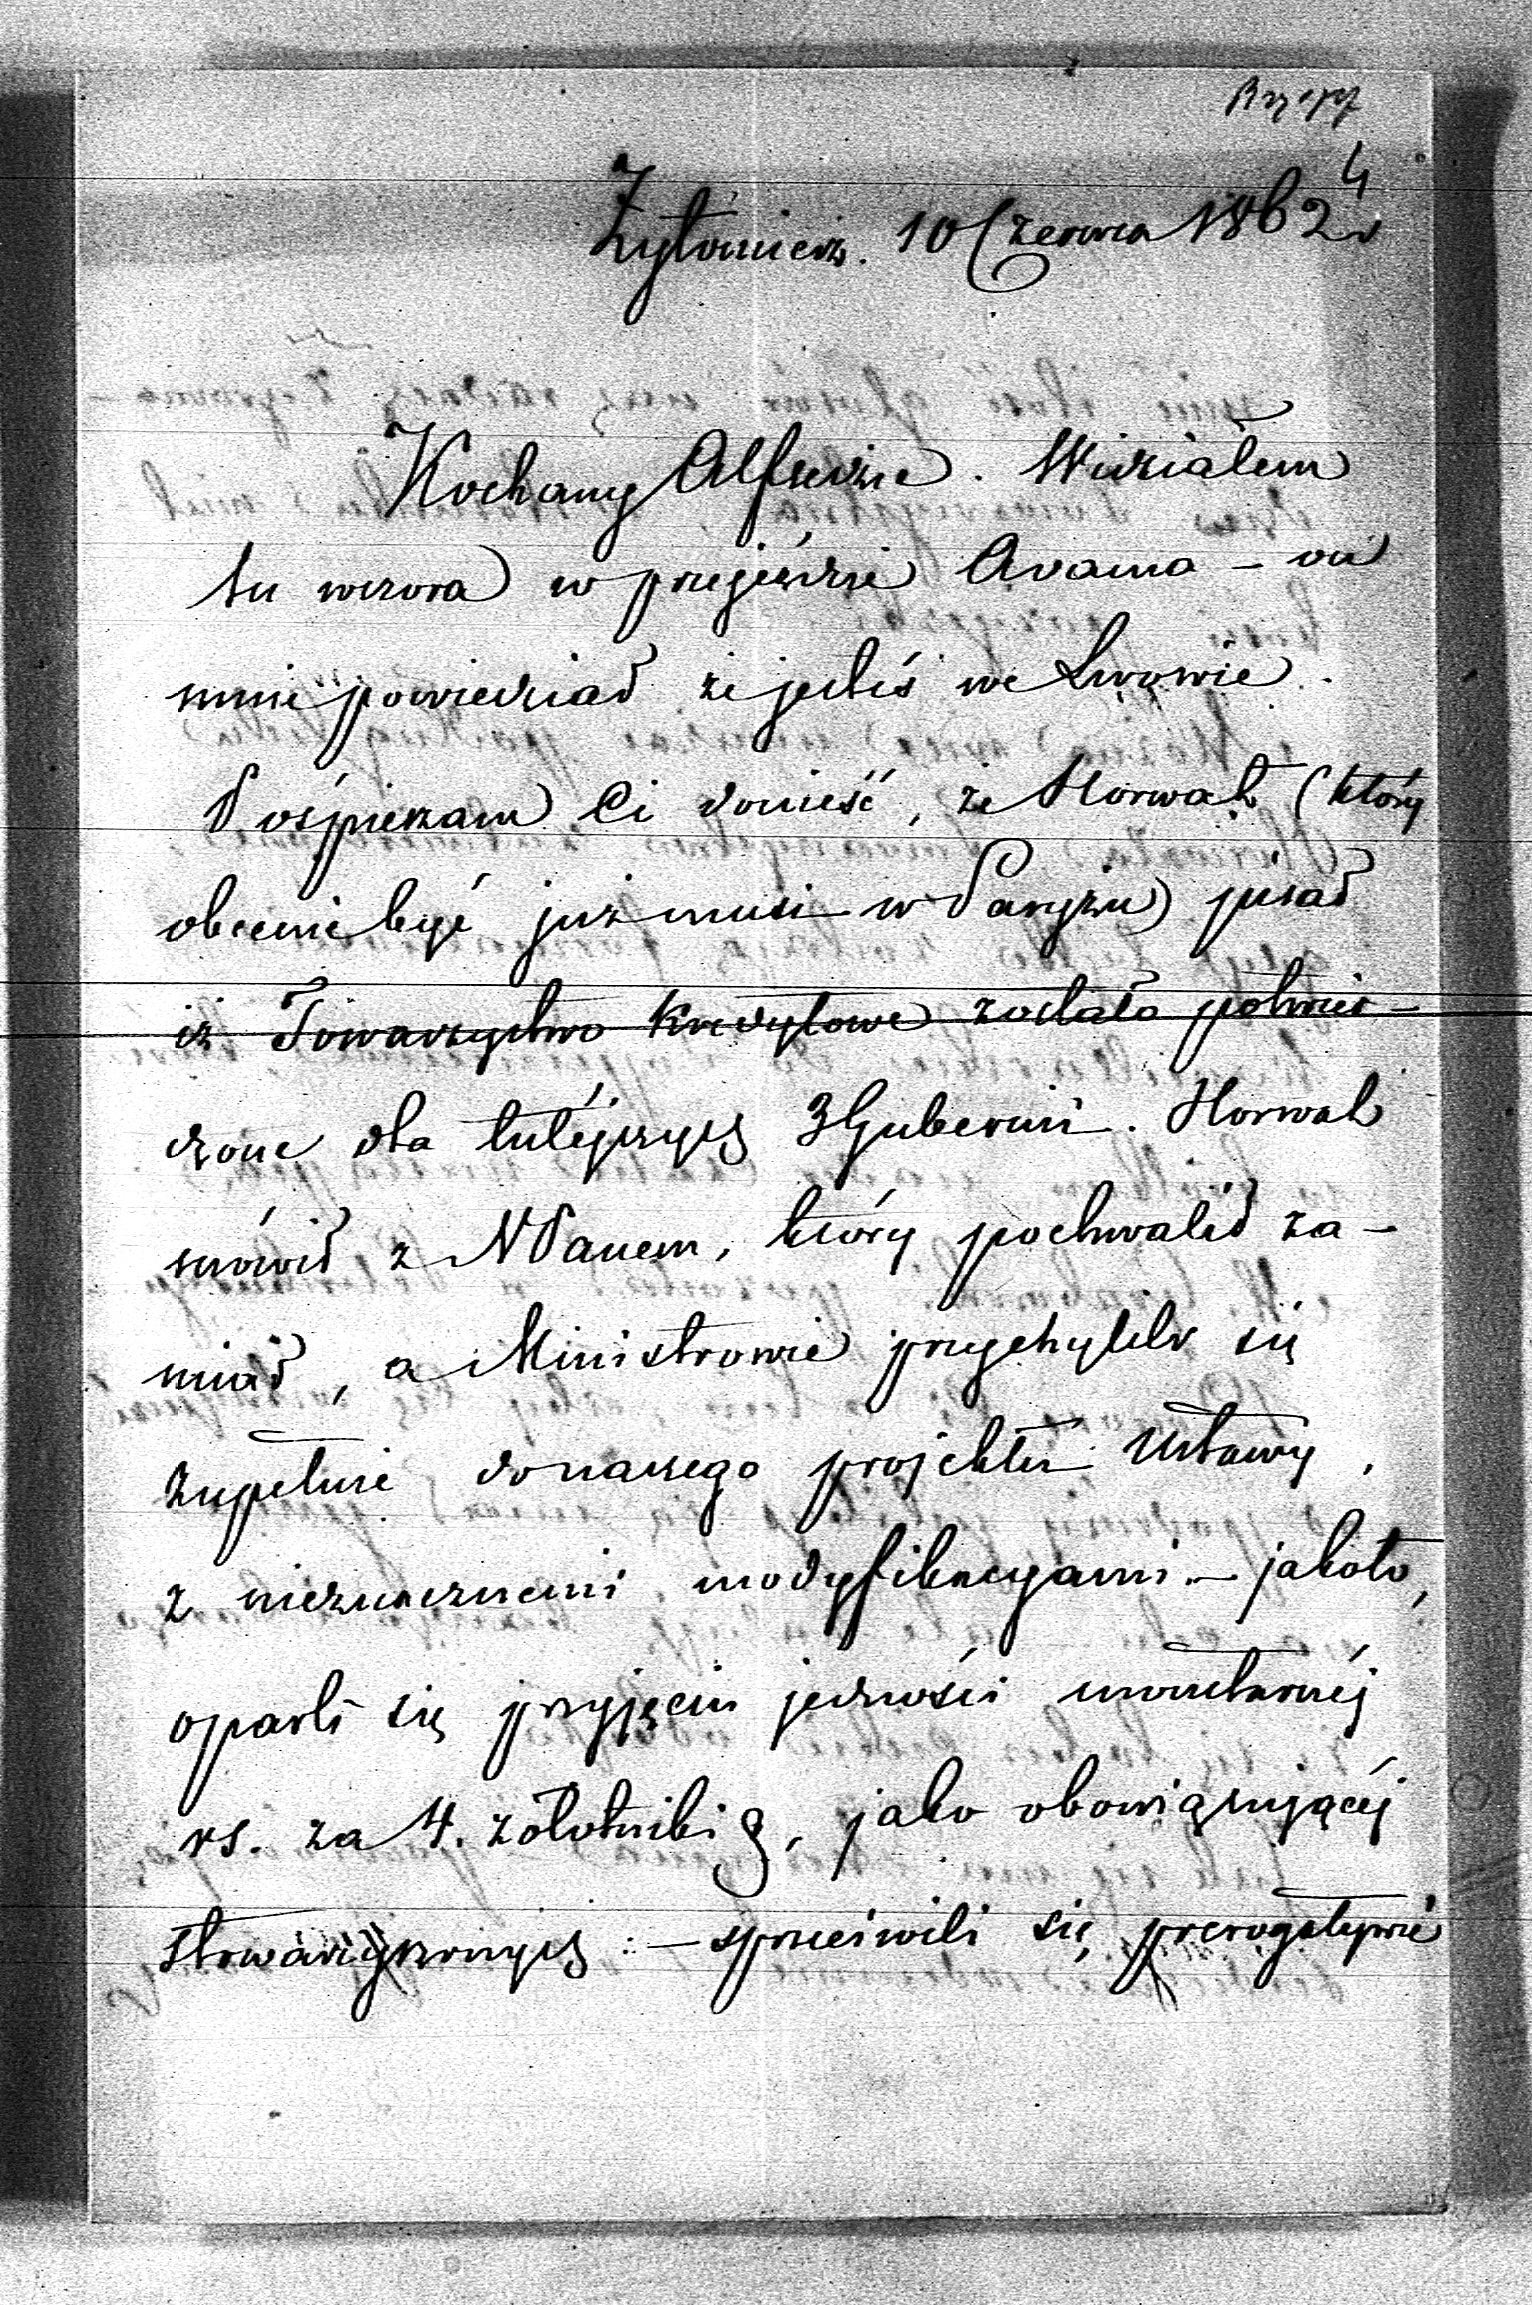 4
Żytomierz. 10 Czerwca 1862 r
Kochany Alfredzie. Widziałem
tu wczora w przejeździe Adama – on
mnie powiedział że jesteś we Lwowie.
Pośpieszam Ci donieść, że Horwat (który
obecnie być już musi w Paryżu) pisał
iż Towarzystwo Kredytowe zostało potwier-
dzone dla tutéjszych 3 Gubernii. Horwat
mówił z NPanem, który pochwalił za-
miar, a Ministrowie przychylili się
zupełnie do naszego projektu Ustawy,
z nieznacznemi modyfikacyami – jakoto,
oparli się przyjęciu jedności monetarnéj
rs. za 4. zołotniki, jako obowiązującéj
Stowarzyszonych : – sprzeciwili się prerogatywie